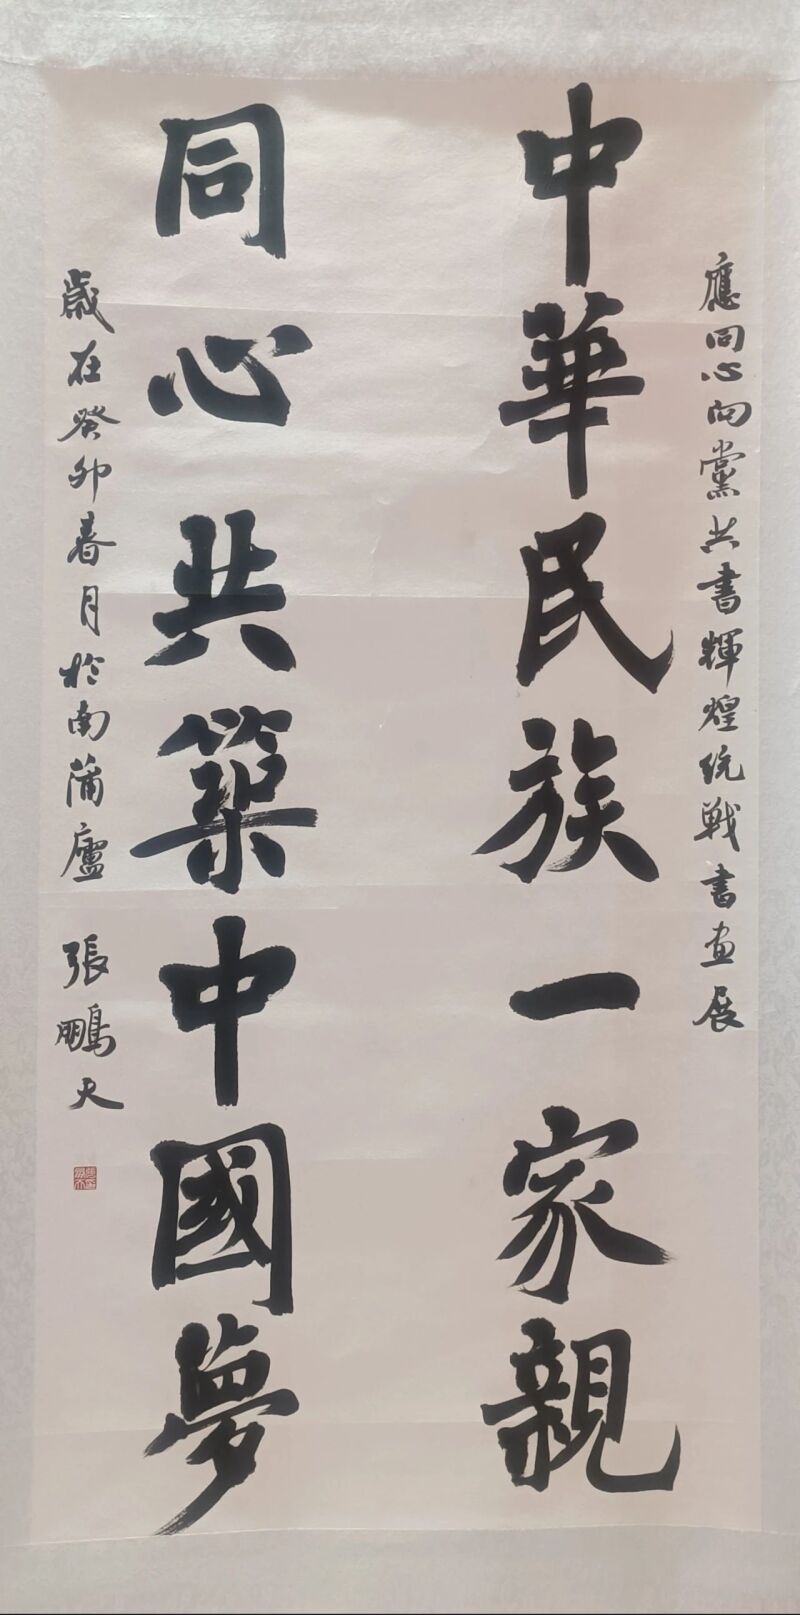 應同心向黨共書輝煌統戰書画展
中華民族一家親
同心共築中國夢
歲在癸卯春月於南蒲廬
張鵬天